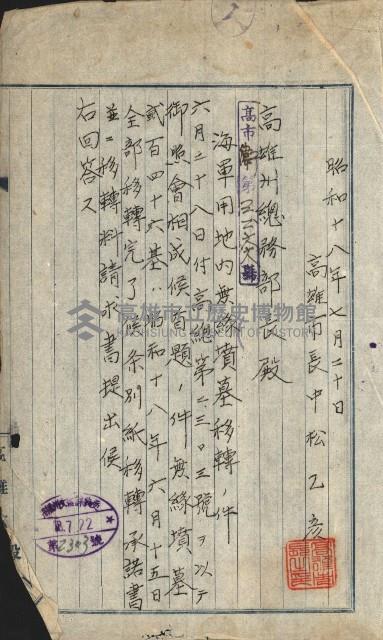 昭和十八年七月二十日
高雄市長中松乙彦
高雄州總務部長殿
海軍用地内無緣墳墓移轉ノ件
六月二十八日付高總第二三〇三號ヲ以テ
御照會相成候首題ノ件無緣墳墓
貳百四十六基ハ昭和十八年六月十五日
全部移轉完了候条別紙移轉承諾書
並ニ移轉料請求書提出候
右回答ス
高雄市立歷史博物館
KAOHSIUNG MUSEUM OF HISTORY
18.7.22